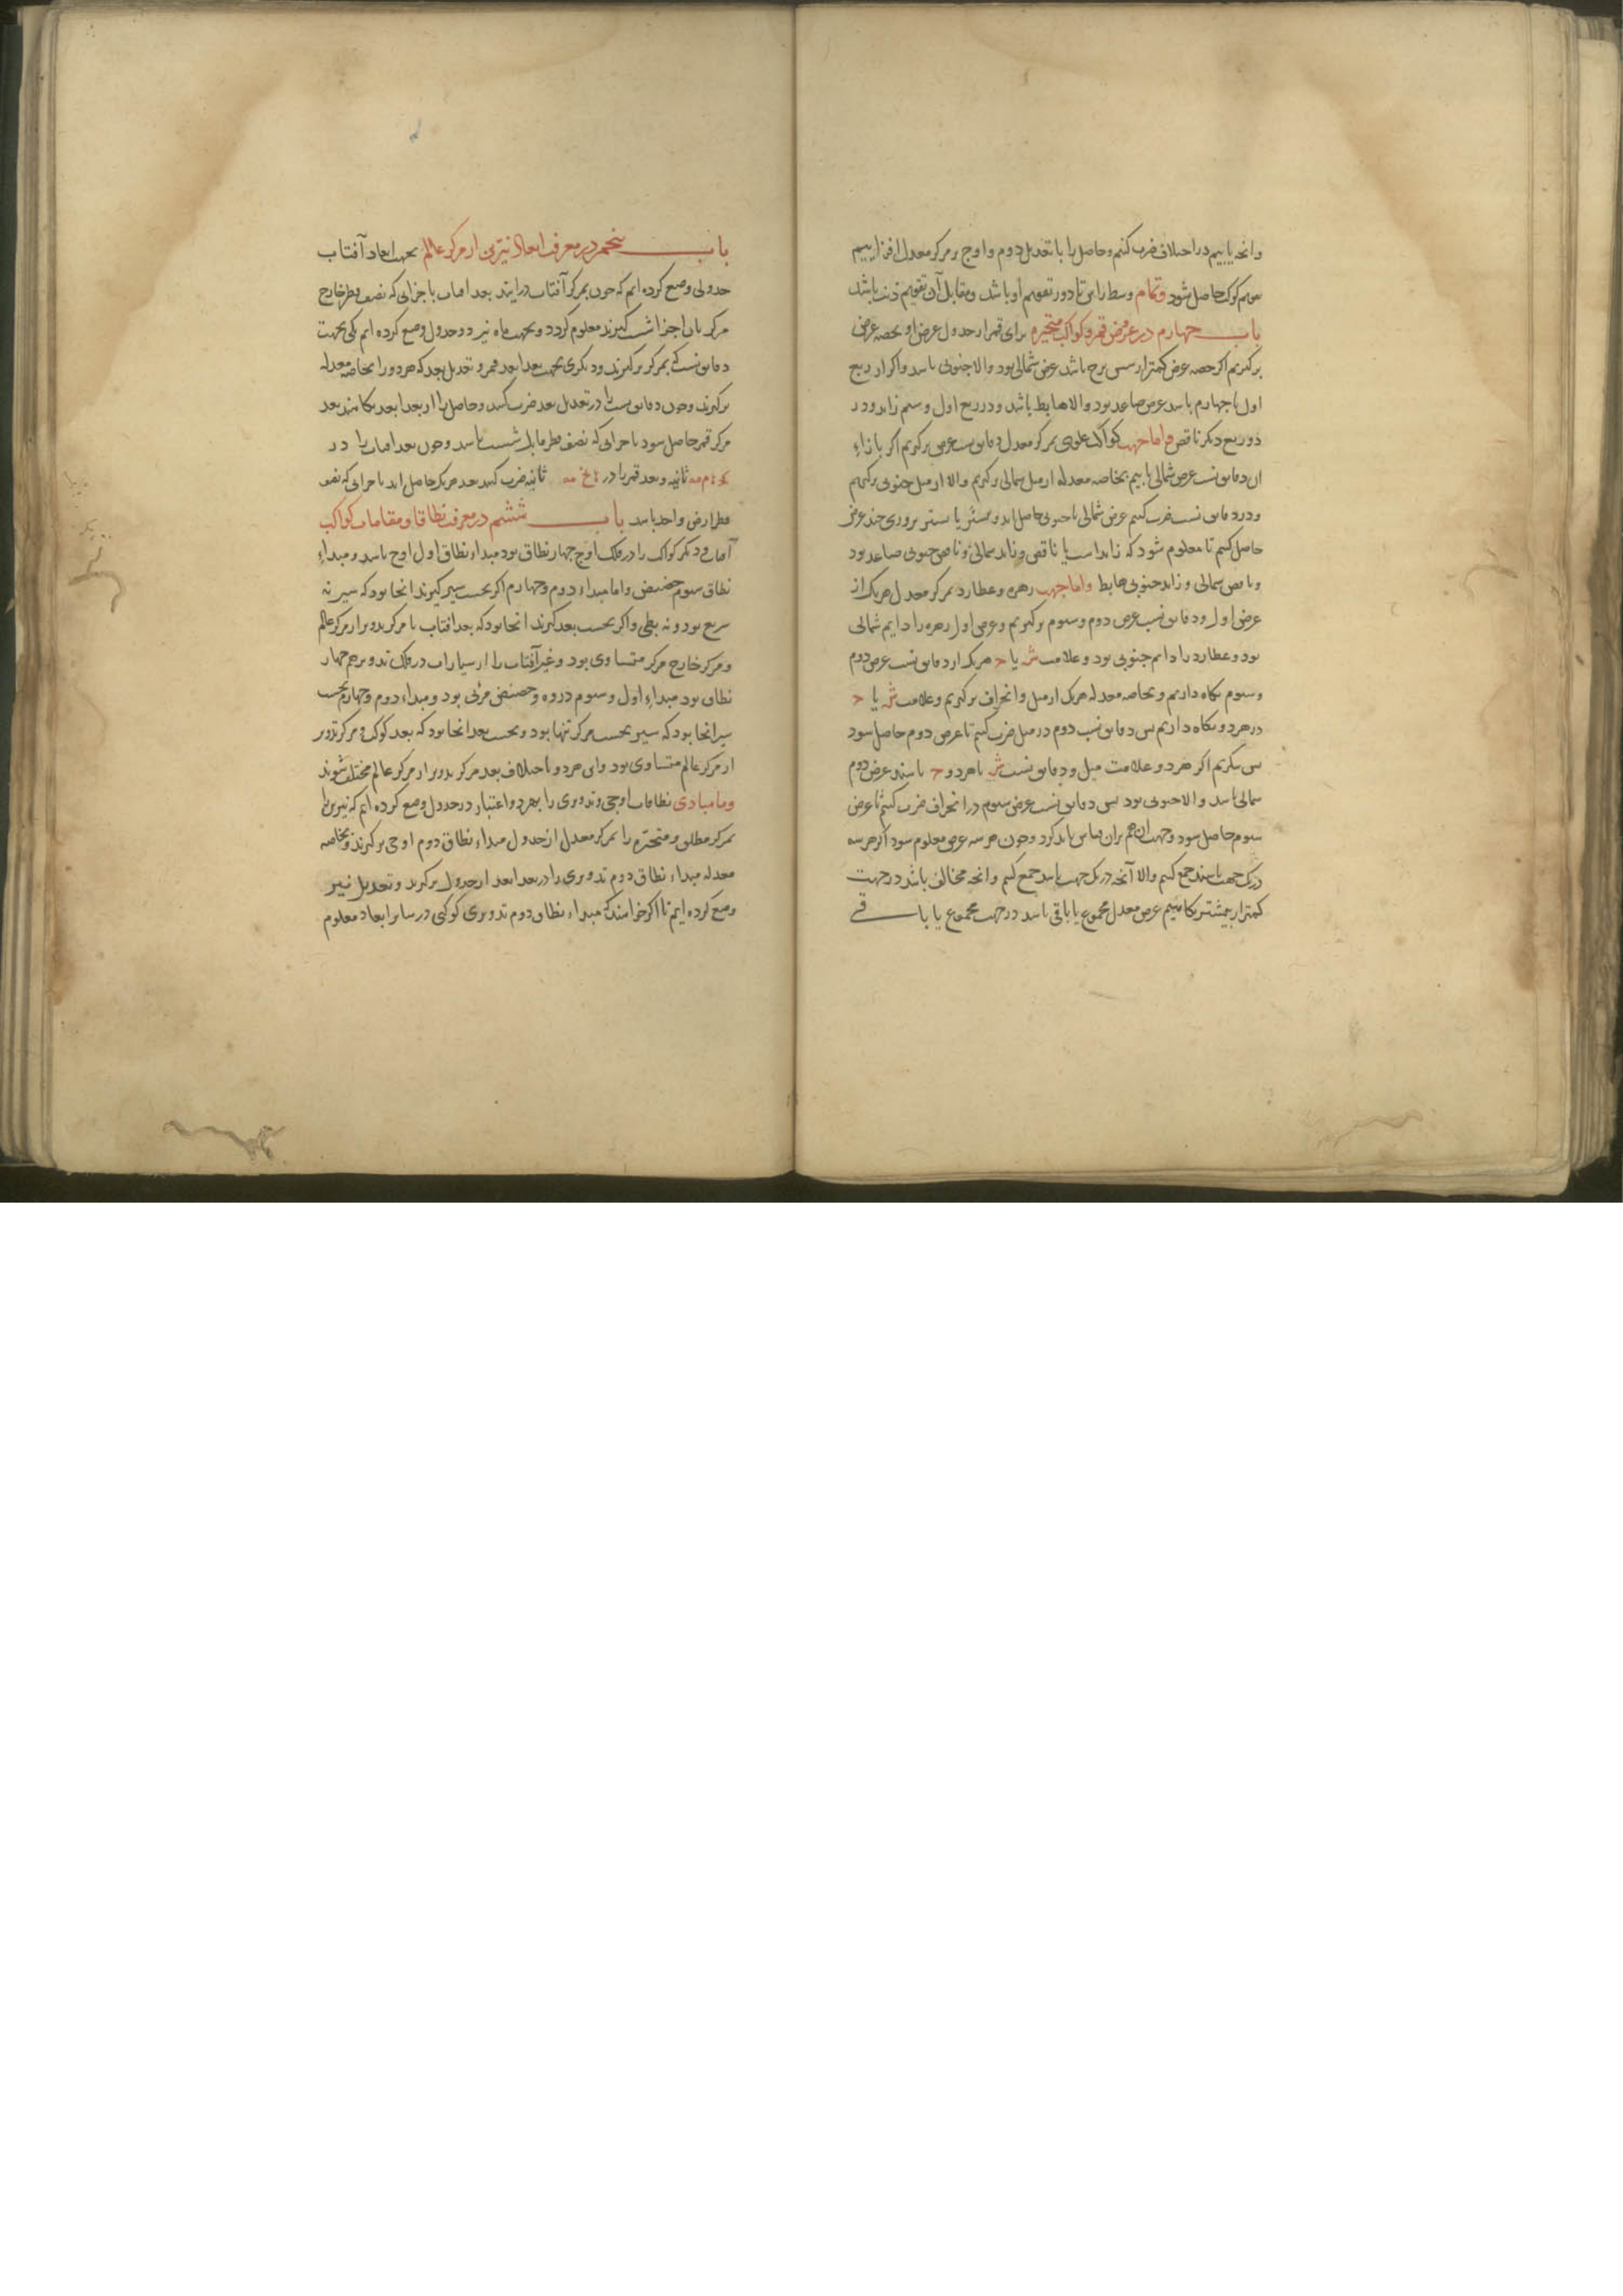 وانچه یابیم در اختلاف ضرب کنیم و حاصل را با تعدیل دوم و اوج بر مرکز معدل افزاییم
تقویم کوکب حاصل شود وتمام وسط راس تا دور تقویم او باشد و مقابل آن تقویم ذنب باشد
باب چهارم در عروض قمر و کواکب متحیره برای قمر از جدول عرض او بحصه عرض
برگیریم اگر حصه عرض کمتر از شش برج باشد عرض شمالی بود والا جنوبی باشد واکر از ربع
اول یا چهارم باشد عرض صاعد بود والا هابط باشد و در ربع اول و سیم زاید و در
دو ربع دیگر ناقص واما جهت کواکب علوی بمرکز معدل دقایق نسب عرض برگیریم اکر بازاء
ان دقایق نسب عرض شمالی یابیم بخاصه معدله از میل شمالی برگیریم والا از میل جنوبی برگیریم
ودر دقایق نسب ضرب کنیم عرض شمالی یا جنوبی حاصل اید و بیشتر یا پستر بروزی چند عرض
حاصل کنیم تا معلوم شود که زاید است یا ناقص و زاید شمالی و ناقص جنوبی صاعد بود
و ناقص شمالی و زاید جنوبی هابط واما جهت زهره و عطارد بمرکز معدل هر یک از
عرض اول و دقایق نسب عرض دوم و سیوم برگیریم و عرض اول زهره را دایم شمالی
بود و عطارد را دایم جنوبی بود و علامت ش یا ح هر یک از دقایق نسب عرض دوم
وسیوم نکاه داریم و بخاصه معدله هر یک از میل و انحراف برگیریم و علامت ش یا ح
در هر دو نکاه داریم پس دقایق نسب دوم در میل ضرب کنیم تا عرض دوم حاصل شود
پس بنکریم اکر هر دو علامت میل و دقایق نسب ش یا هر دو ح باشند عرض دوم
شمالی باشد والا جنوبی بود پس دقایق نسب عرض سیوم در انحراف ضرب کنیم تا عرض
سیوم حاصل شود وجهت ان هم بران قیاس باید کرد وچون هر سه عرض معلوم شود اکر هر سه
در یک جهت باشند جمع کنیم والا آنچه در یک جهت باشد جمع کنیم وانچه مخالف باشد در جهت
کمتر از بیشتر بکاهیم عرض معدل مجموع یا باقی باشد در جهت مجموع یا باقی
باب پنجم در معرفت ابعاد نیرین از مرکز عالم بجهت ابعاد آفتاب
جدولی وضع کرده ایم که چون بمرکز آفتاب درایند بعد افتاب باجزایی که نصف قطر خارج
مرکز بان اجزا شست گیرند معلوم گردد و بجهت ماه نیز دو جدول وضع کرده ایم یکی بجهت
دقایق نسب که بمرکز برگیرند و دیگری بجهت بعد ابعد قمر و تعدیل بعد که هر دو را بخاصه معدله
برگیرند وچون دقایق نسب را در تعدیل بعد ضرب کنند و حاصل را از بعد ابعد بکاهند بعد
مرکز قمر حاصل شود باجزایی که نصف قطر مایل شست باشد وچون بعد افتاب را در
ثانیه و بعد قمر را در ثانیه ضرب کنند بعد هر یک حاصل اید باجزایی که نصف
قطر ارض واحد باشد باب ششم در معرفت نطاقات و مقامات کواکب
آفتاب و دیگر کواکب را در فلک اوج چهار نطاق بود مبداء نطاق اول اوج باشد و مبداء
نطاق سیوم حضیض واما مبداء دوم و چهارم اکر بحسب سیر گیرند انجا بود که سیر نه
سریع بود و نه بطی و اکر بحسب بعد گیرند انجا بود که بعد افتاب یا مرکز تدویر از مرکز عالم
و مرکز خارج مرکز متساوی بود وغیر آفتاب را از سیارات در فلک تدویر هم چهار
نطاق بود مبداء اول و سیوم ذروه و حضیض مرئی بود و مبداء دوم و چهارم بحسب
سیر انجا بود که سیر بحسب مرکز تنها بود و بحسب بعد انجا بود که بعد کوکب و مرکز تدویر
از مرکز عالم متساوی بود واین هر دو باختلاف بعد مرکز تدویر از مرکز عالم مختلف شوند
وما مبادی نطاقات اوجی و تدویری را بهر دو اعتبار در جدول وضع کرده ایم که نیرین را
بمرکز مطلق و متحیره را بمرکز معدل از جدول مبداء نطاق دوم اوجی برگیرند و بخاصه
معدله مبداء نطاق دوم تدویری را در بعد ابعد از جدول برگیرند و تعدیل نیز
وضع کرده ایم تا اکر خواهند که مبداء نطاق دوم تدویری کوکبی در سایر ابعاد معلوم